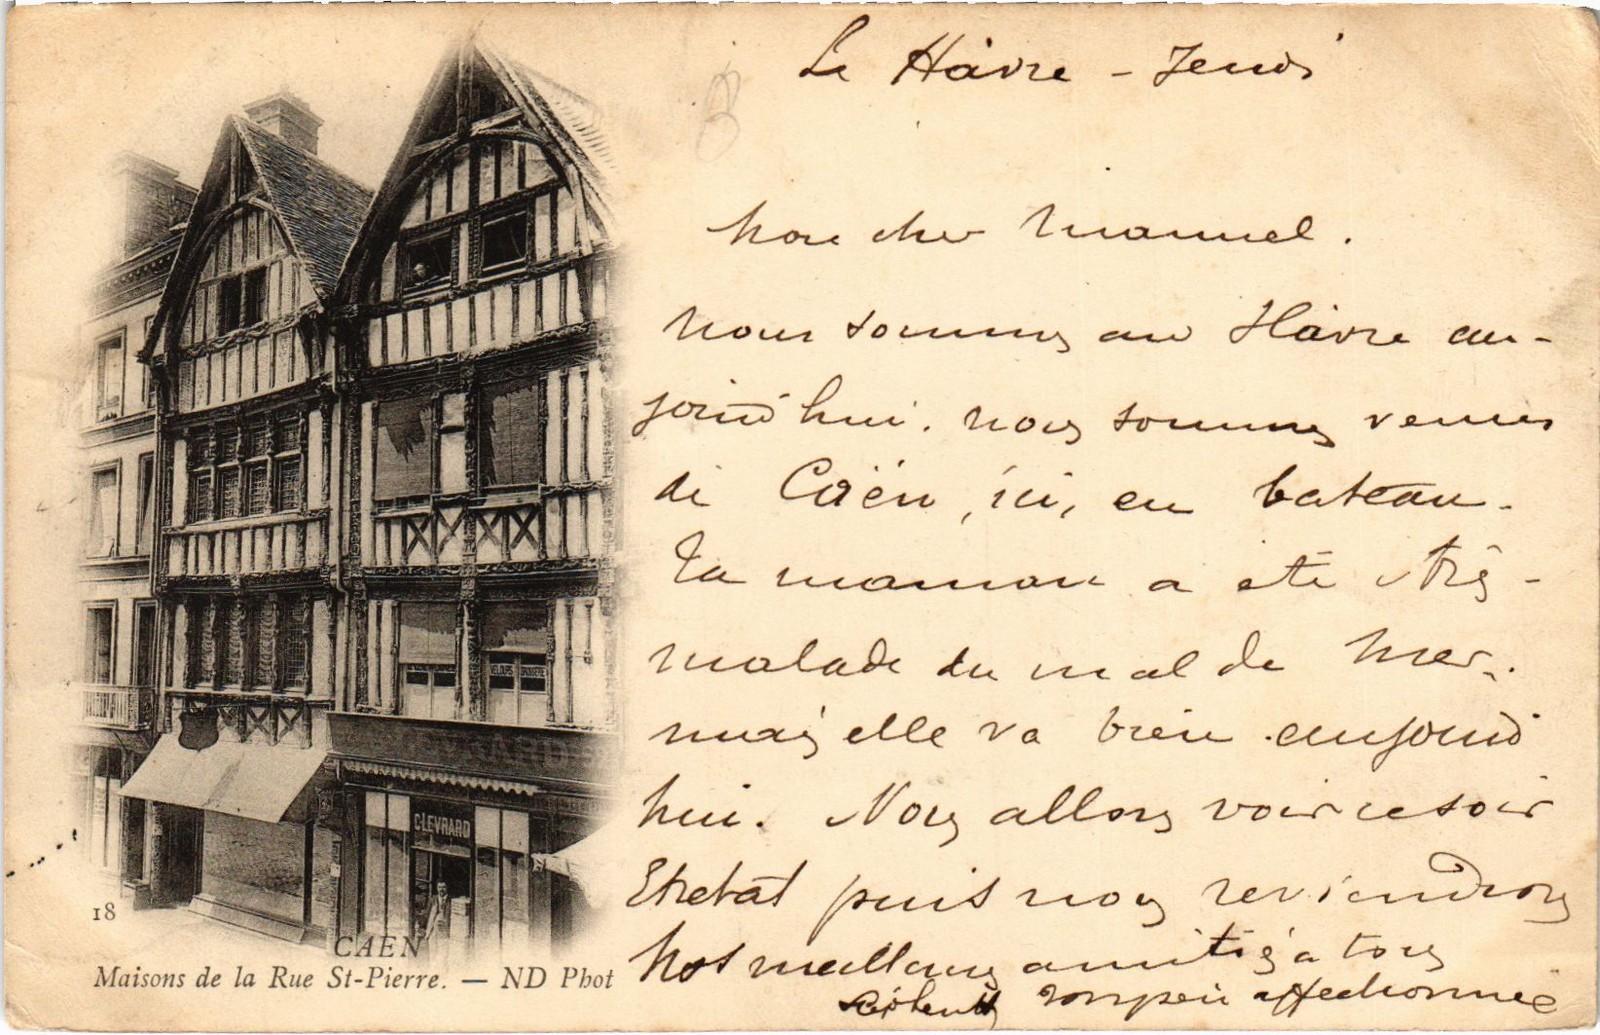 Le Hâvre - Jeudi
Mon cher Manuel.
Nous sommes au Hâvre au-
jourd'hui. nous sommes venus
de Caën, ici, en bateau.
Ta maman a été très
malade du mal de mer.
mais elle va bien aujourd
hui. Nous allons voir ce soir
Etretat puis nous reviendrons
Nos meilleures amitiés à tous
affectionnée
C. LEVRARD
18
CAEN
Maisons de la Rue St-Pierre. — ND Phot